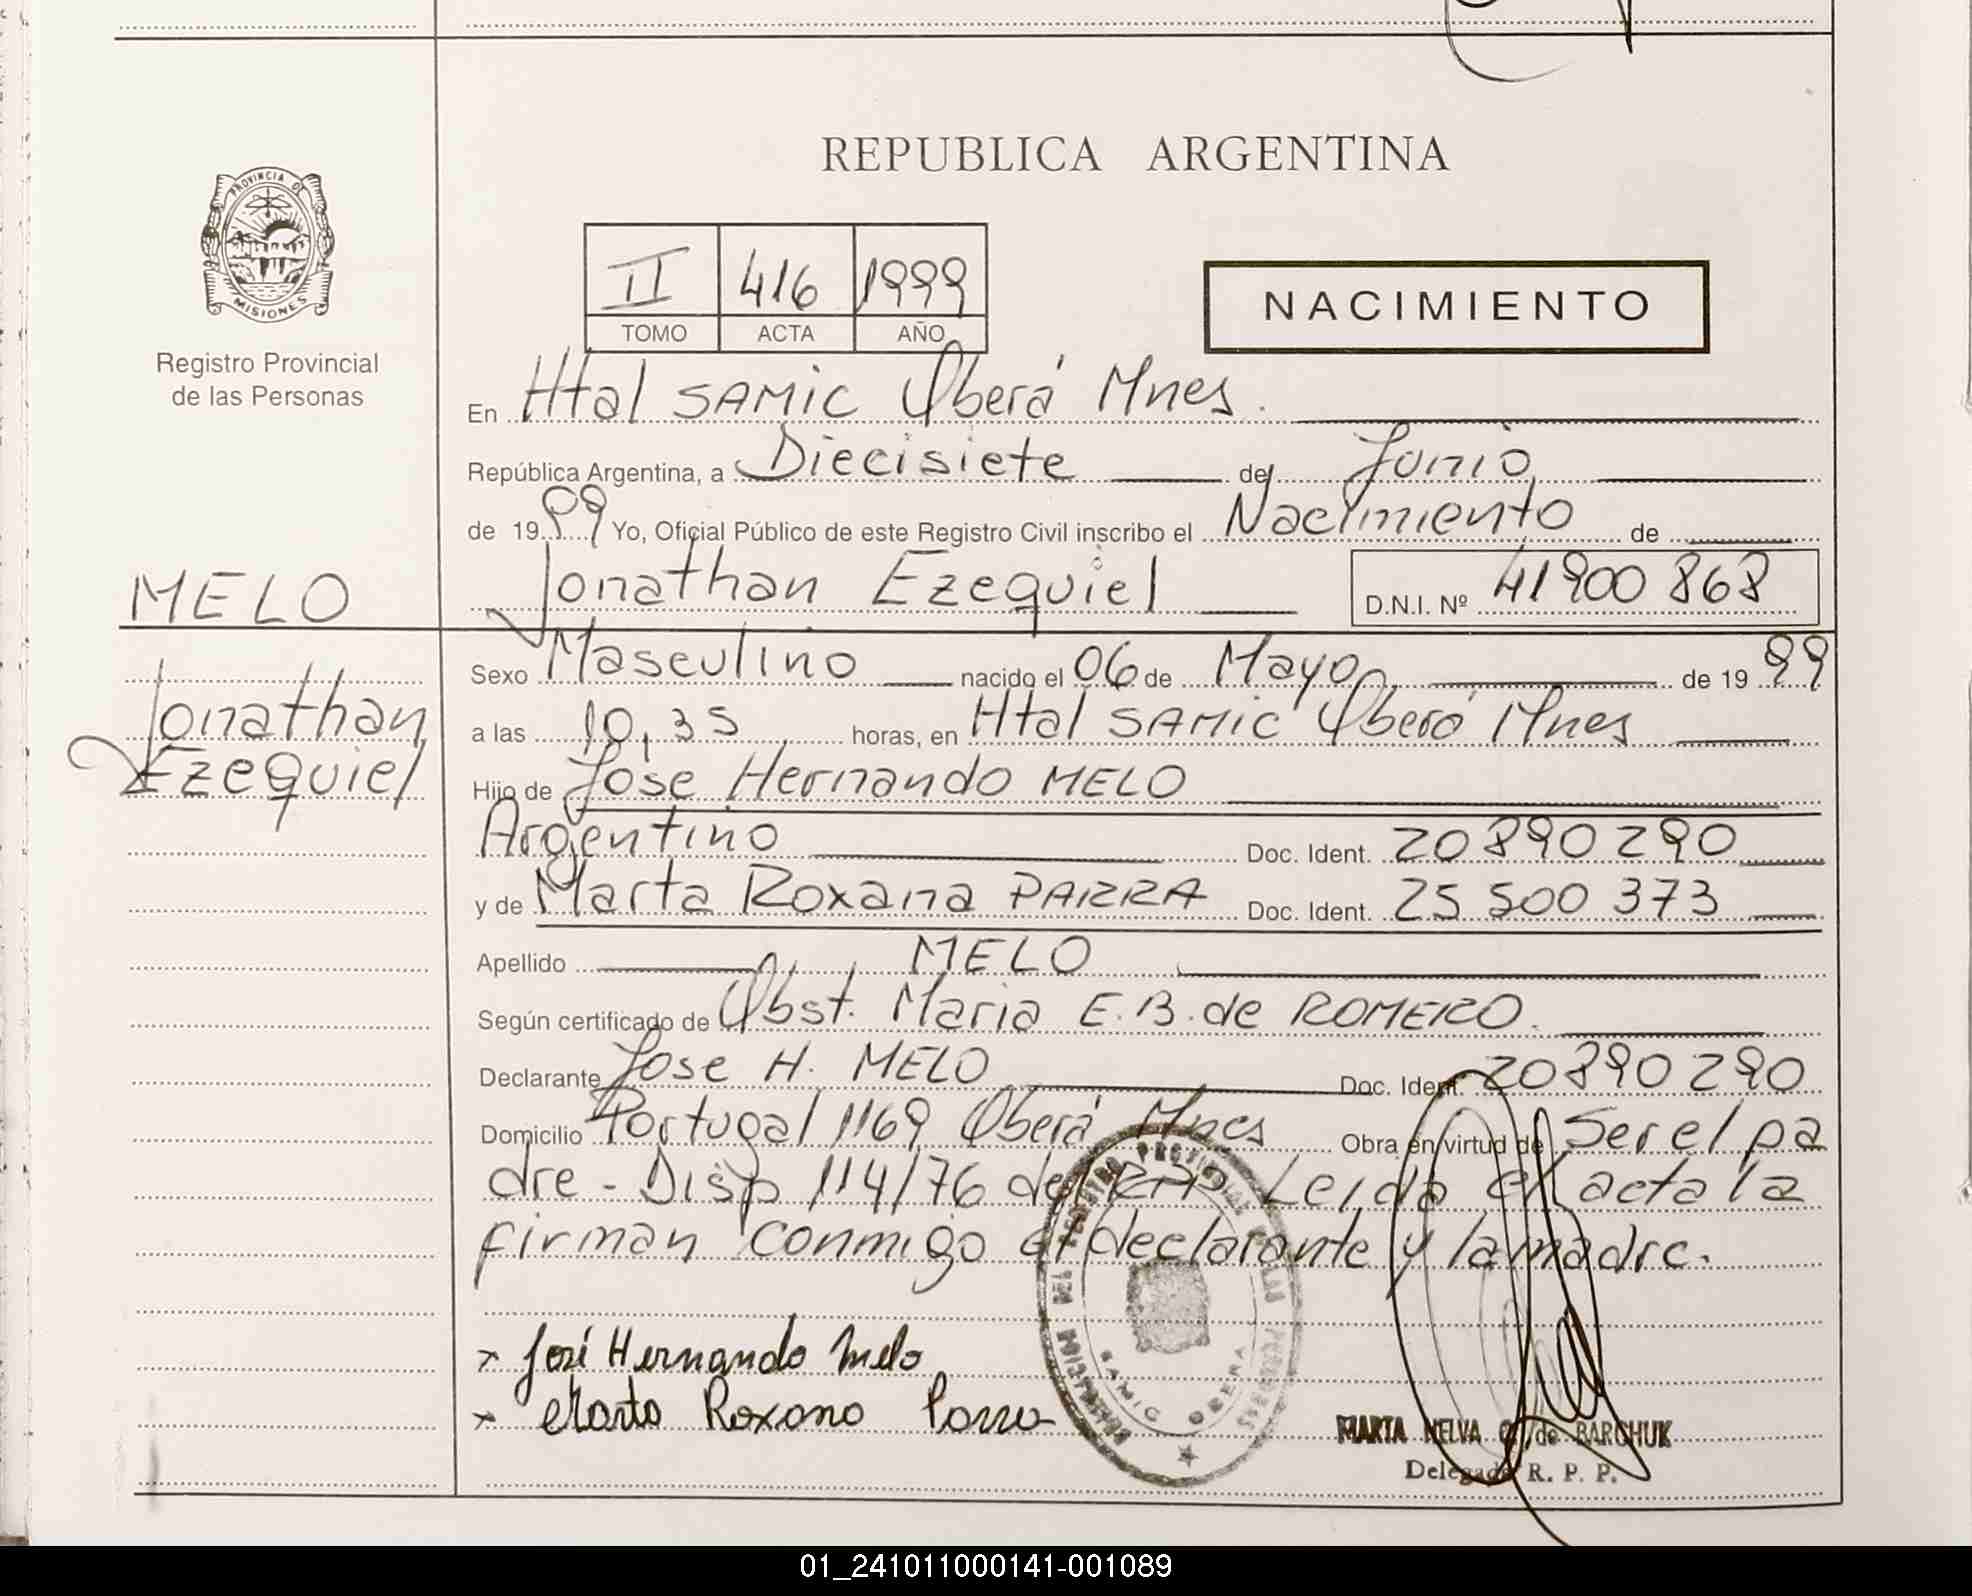 REPUBLICA ARGENTINA
PROVINCIA DE
MISIONES
Registro Provincial
de las Personas
II 416 1999
TOMO ACTA AÑO
NACIMIENTO
En Htal SAMIC Oberá Mnes.
República Argentina, a Diecisiete de Junio
de 1999 Yo, Oficial Público de este Registro Civil inscribo el Nacimiento de
MELO
Jonathan Ezequiel D.N.I. Nº 41900 868
Jonathan
Ezequiel
Sexo Masculino nacido el 06 de Mayo de 1999
a las 10,35 horas, en Htal SAMIC Oberá Mnes
Hijo de Jose Hernando MELO
Argentino Doc. Ident. 20890290
y de Marta Roxana PARRA Doc. Ident. 25 500 373
Apellido MELO
Según certificado de Obst. Maria E.B. de ROMERO.
Declarante Jose H. MELO Doc. Ident. 20890290
Domicilio Portugal 1169 Oberá Mnes Obra en virtud de Ser el pa
dre - Disp 114/76 del RPP Leida el acta la
firman conmigo el declarante y la madre.
x José Hernando Melo
x Marta Roxana Parra
REGISTRO PROVINCIAL DE LAS PERSONAS
DELEGACION
SAMIC OBERA
MARTA NELVA de BARCHUK
Delegada R. P. P.
01_241011000141-001089